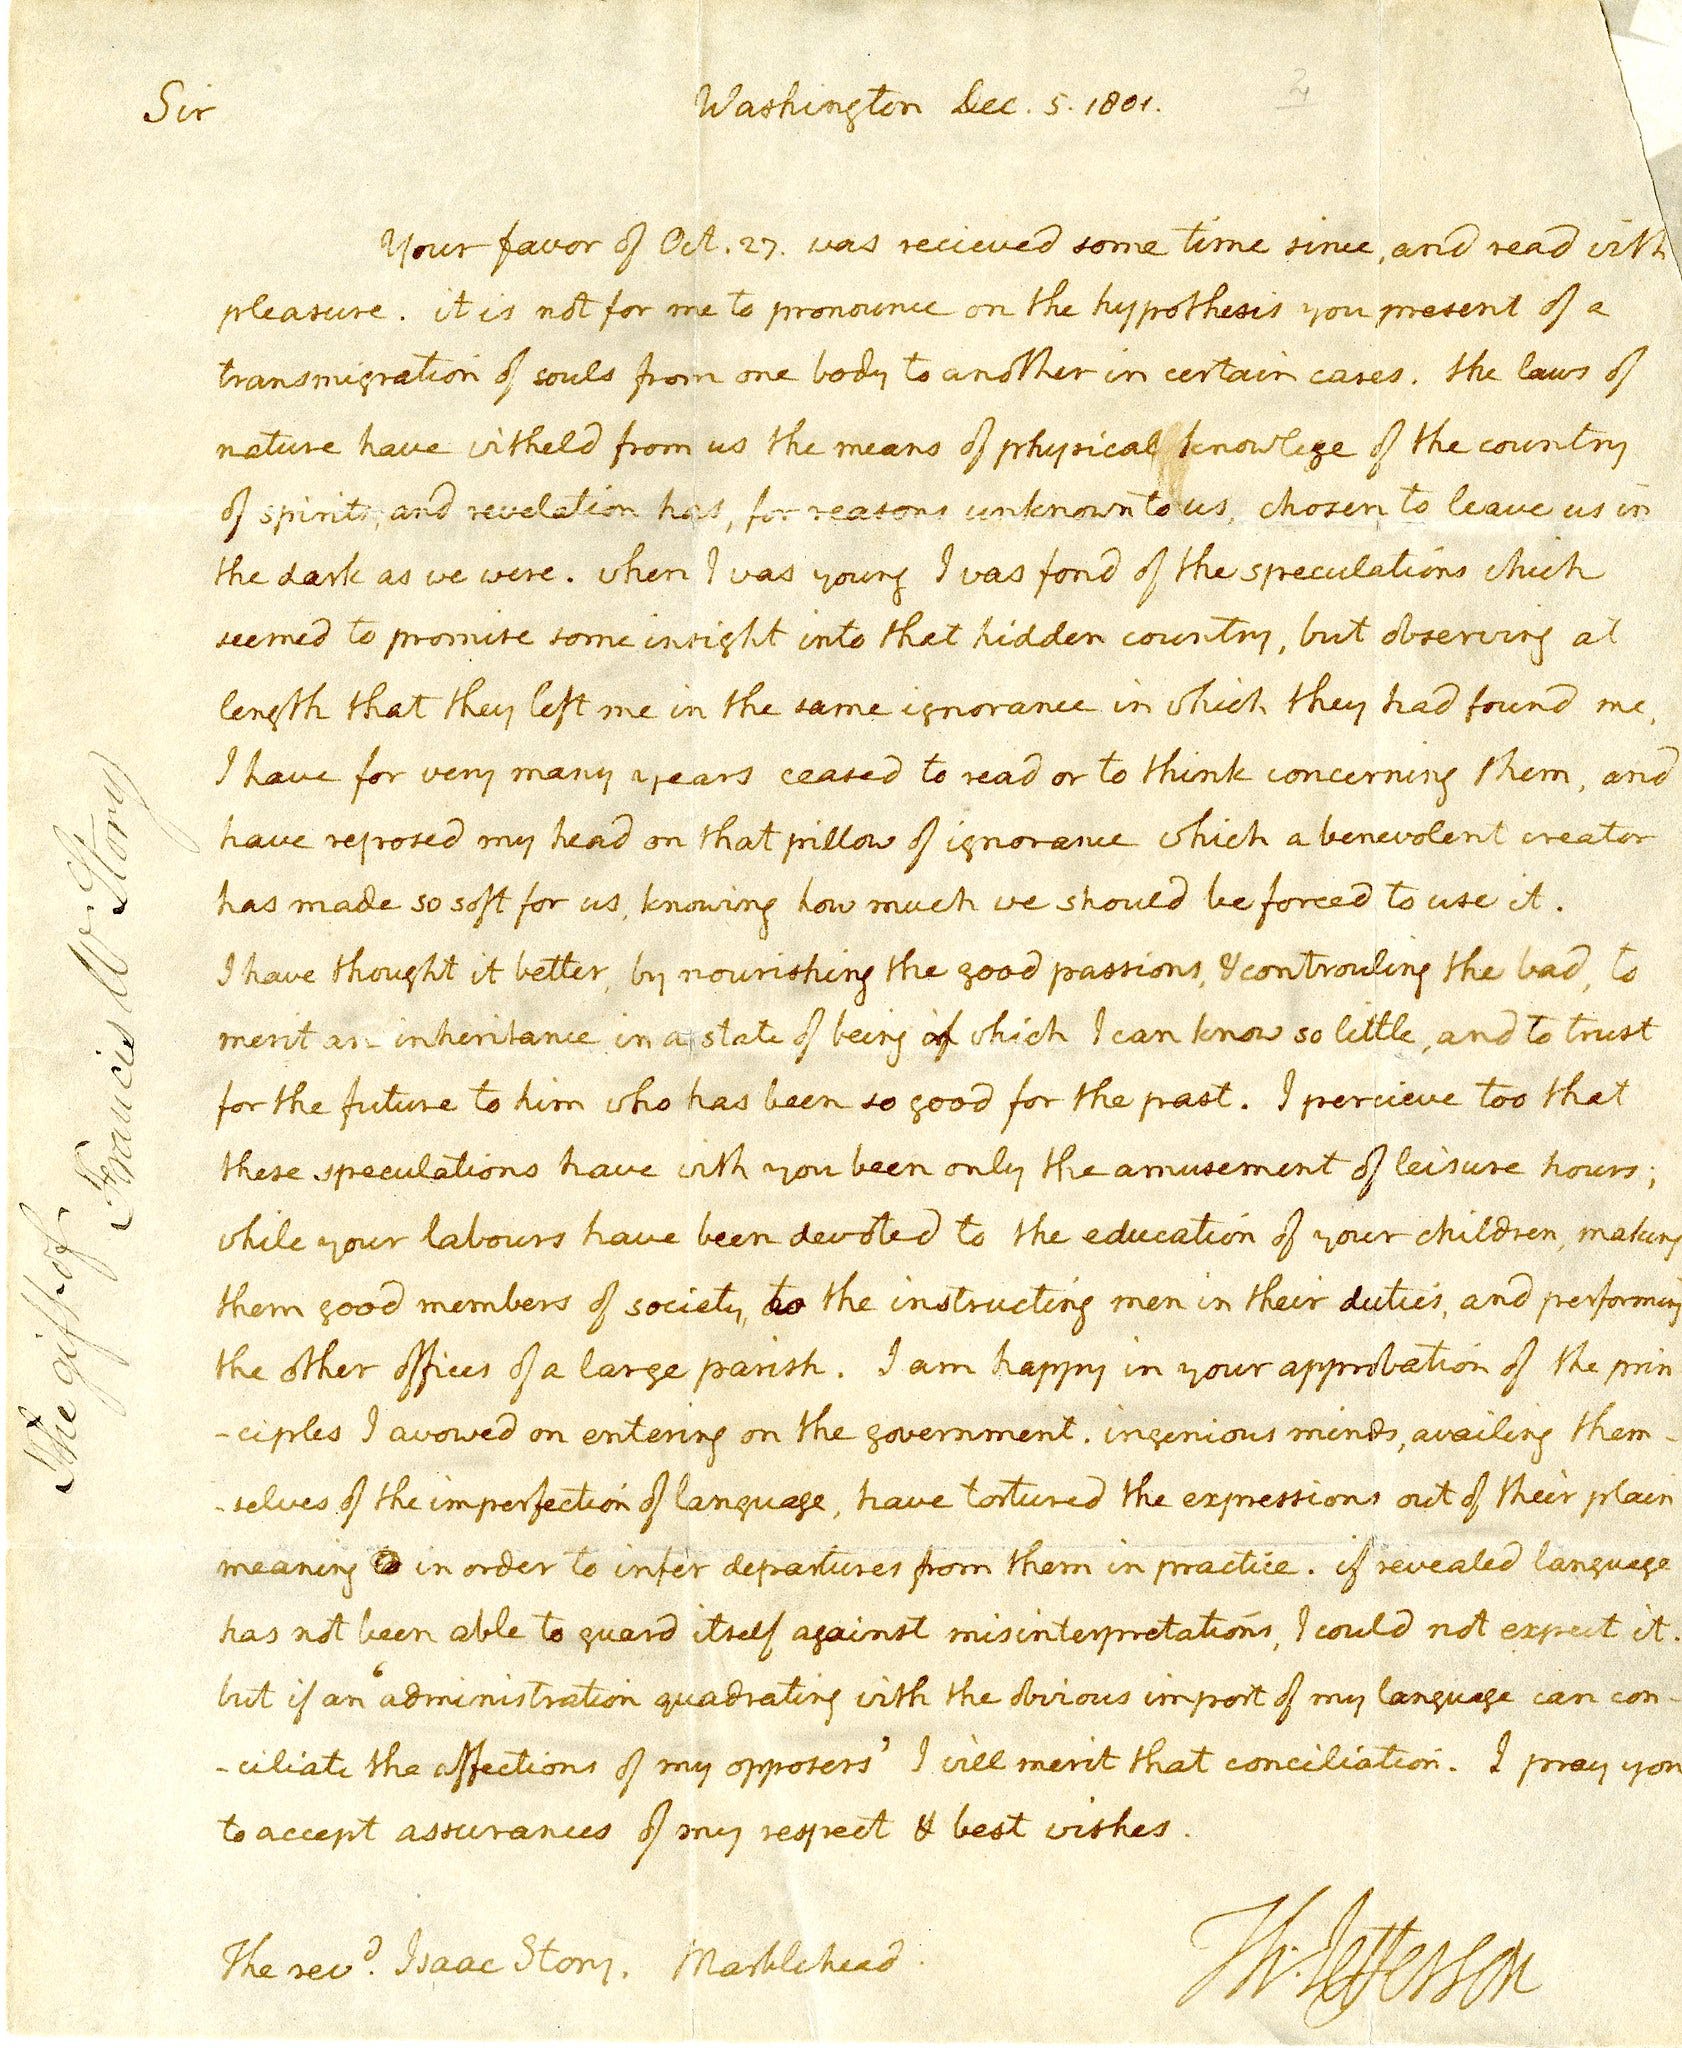 2
Sir
Washington Dec. 5. 1801.
Your favor of Oct. 27. was recieved some time since, and read with
pleasure. it is not for me to pronounce on the hypothesis you present of a
transmigration of souls from one body to another in certain cases. the laws of
nature have witheld from us the means of physical knowlege of the country
of spirits, and revelation has, for reasons unknown to us, chosen to leave us in
the dark as we were. when I was young I was fond of the speculations which
seemed to promise some insight into that hidden country, but observing at
length that they left me in the same ignorance in which they had found me,
I have for very many years ceased to read or to think concerning them, and
have reposed my head on that pillow of ignorance which a benevolent creator
has made so soft for us, knowing how much we should be forced to use it.
I have thought it better, by nourishing the good passions, & controuling the bad, to
merit an inheritance in a state of being of which I can know so little, and to trust
for the future to him who has been so good for the past. I percieve too that
these speculations have with you been only the amusement of leisure hours;
while your labours have been devoted to the education of your children, making
them good members of society, to the instructing men in their duties, and performing
the other offices of a large parish. I am happy in your approbation of the prin
-ciples I avowed on entering on the government. ingenious minds, availing them-
-selves of the imperfection of language, have tortured the expressions out of their plain
meaning in order to infer departures from them in practice. if revealed language
has not been able to guard itself against misinterpretations, I could not expect it.
but if an 'administration quadrating with the obvious import of my language can con-
-ciliate the affections of my opposers' I will merit that conciliation. I pray you
to accept assurances of my respect & best wishes.
Th: Jefferson
The revd. Isaac Story. Marblehead.
The gift of
Francis W Story